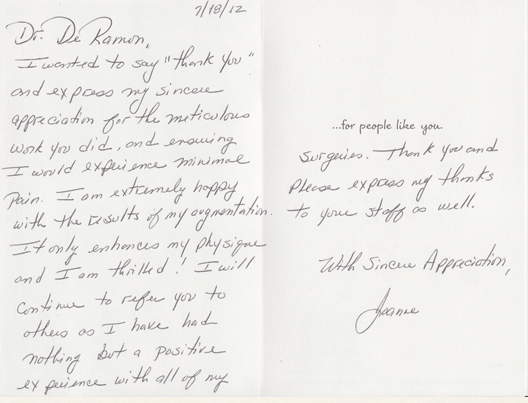 7/18/12
Dr. De Ramon,
I wanted to say "thank you"
and express my sincere
appreciation for the meticulous
work you did, and ensuring
I would experience minimal
pain. I am extremely happy
with the results of my augmentation.
It only enhances my physique
and I am thrilled! I will
continue to refer you to
others as I have had
nothing but a positive
experience with all of my
...for people like you.
surgeries. Thank you and
please express my thanks
to your staff as well.
With Sincere Appreciation,
Joanne